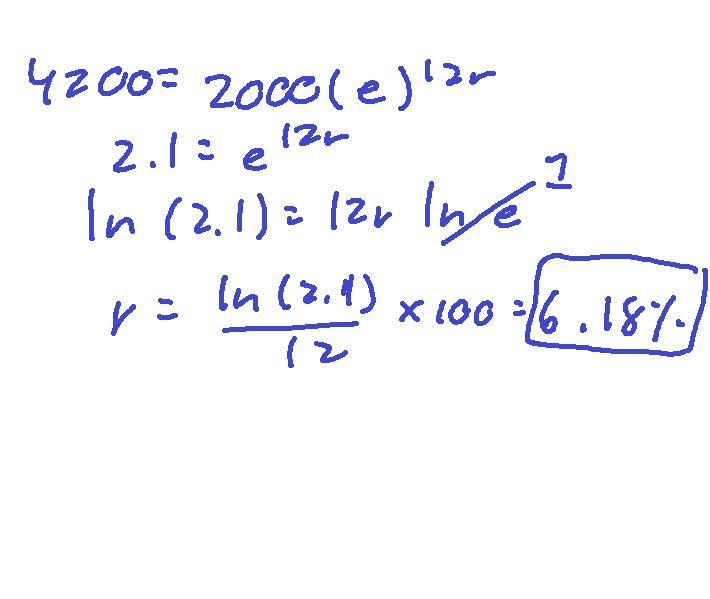 4200 = 2000(e)^12r
2.1 = e^12r
ln (2.1) = 12r ln e 1
r = ln (2.1) / 12 × 100 = 6.18%